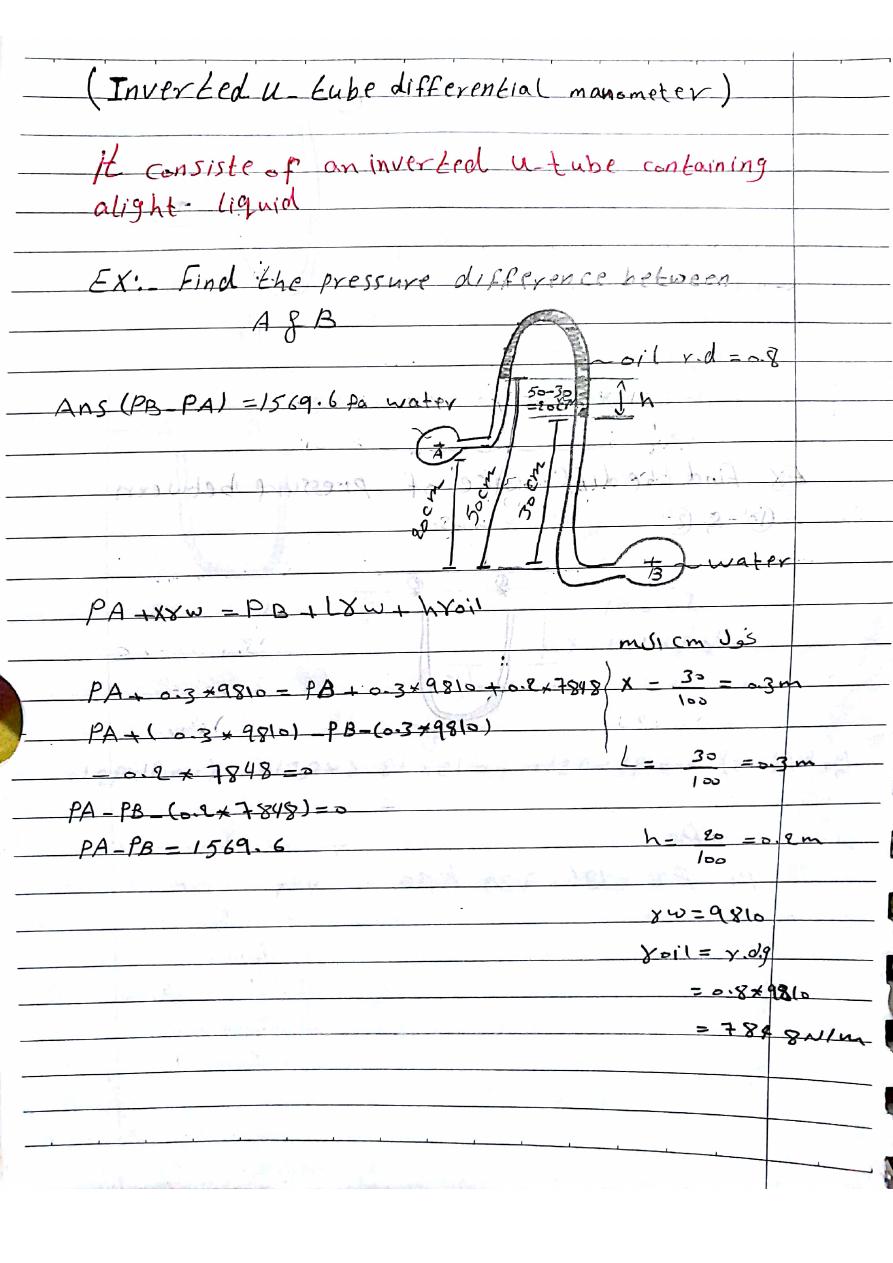 (Inverted u- tube differential manometer)
it consiste of an inverted u-tube containing
alight. liquid
EX:- Find the pressure difference between
A & B
oil r.d = 0.8
Ans (PB-PA) = 1569.6 pa water
50-30
=20cm
h
A
20cm
50cm
30cm
B
water
PA + xγw = PB + Lγw + hγoil
نحول cm الى m
PA + 0.3*9810 = PB + 0.3*9810 + 0.2*7848
x = 30/100 = 0.3m
PA + (0.3*9810) - PB - (0.3*9810)
- 0.2*7848 = 0
L = 30/100 = 0.3m
PA - PB - (0.2*7848) = 0
PA - PB = 1569.6
h = 20/100 = 0.2m
γw = 9810
γoil = r.d.g
= 0.8*9810
= 7848N/m